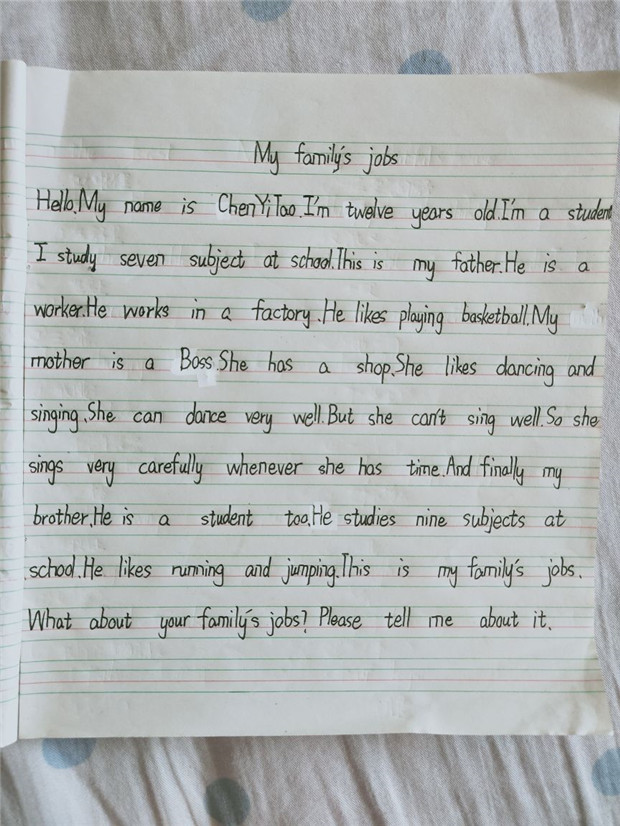 My family's jobs
Hello.My name is ChenYiTao.I'm twelve years old.I'm a student
I study seven subject at school.This is my father.He is a
worker.He works in a factory.He likes playing basketball.My
mother is a Boss.She has a shop.She likes dancing and
singing.She can dance very well.But she can't sing well.So she
sings very carefully whenever she has time.And finally my
brother.He is a student too.He studies nine subjects at
school.He likes running and jumping.This is my family's jobs.
What about your family's jobs? Please tell me about it.